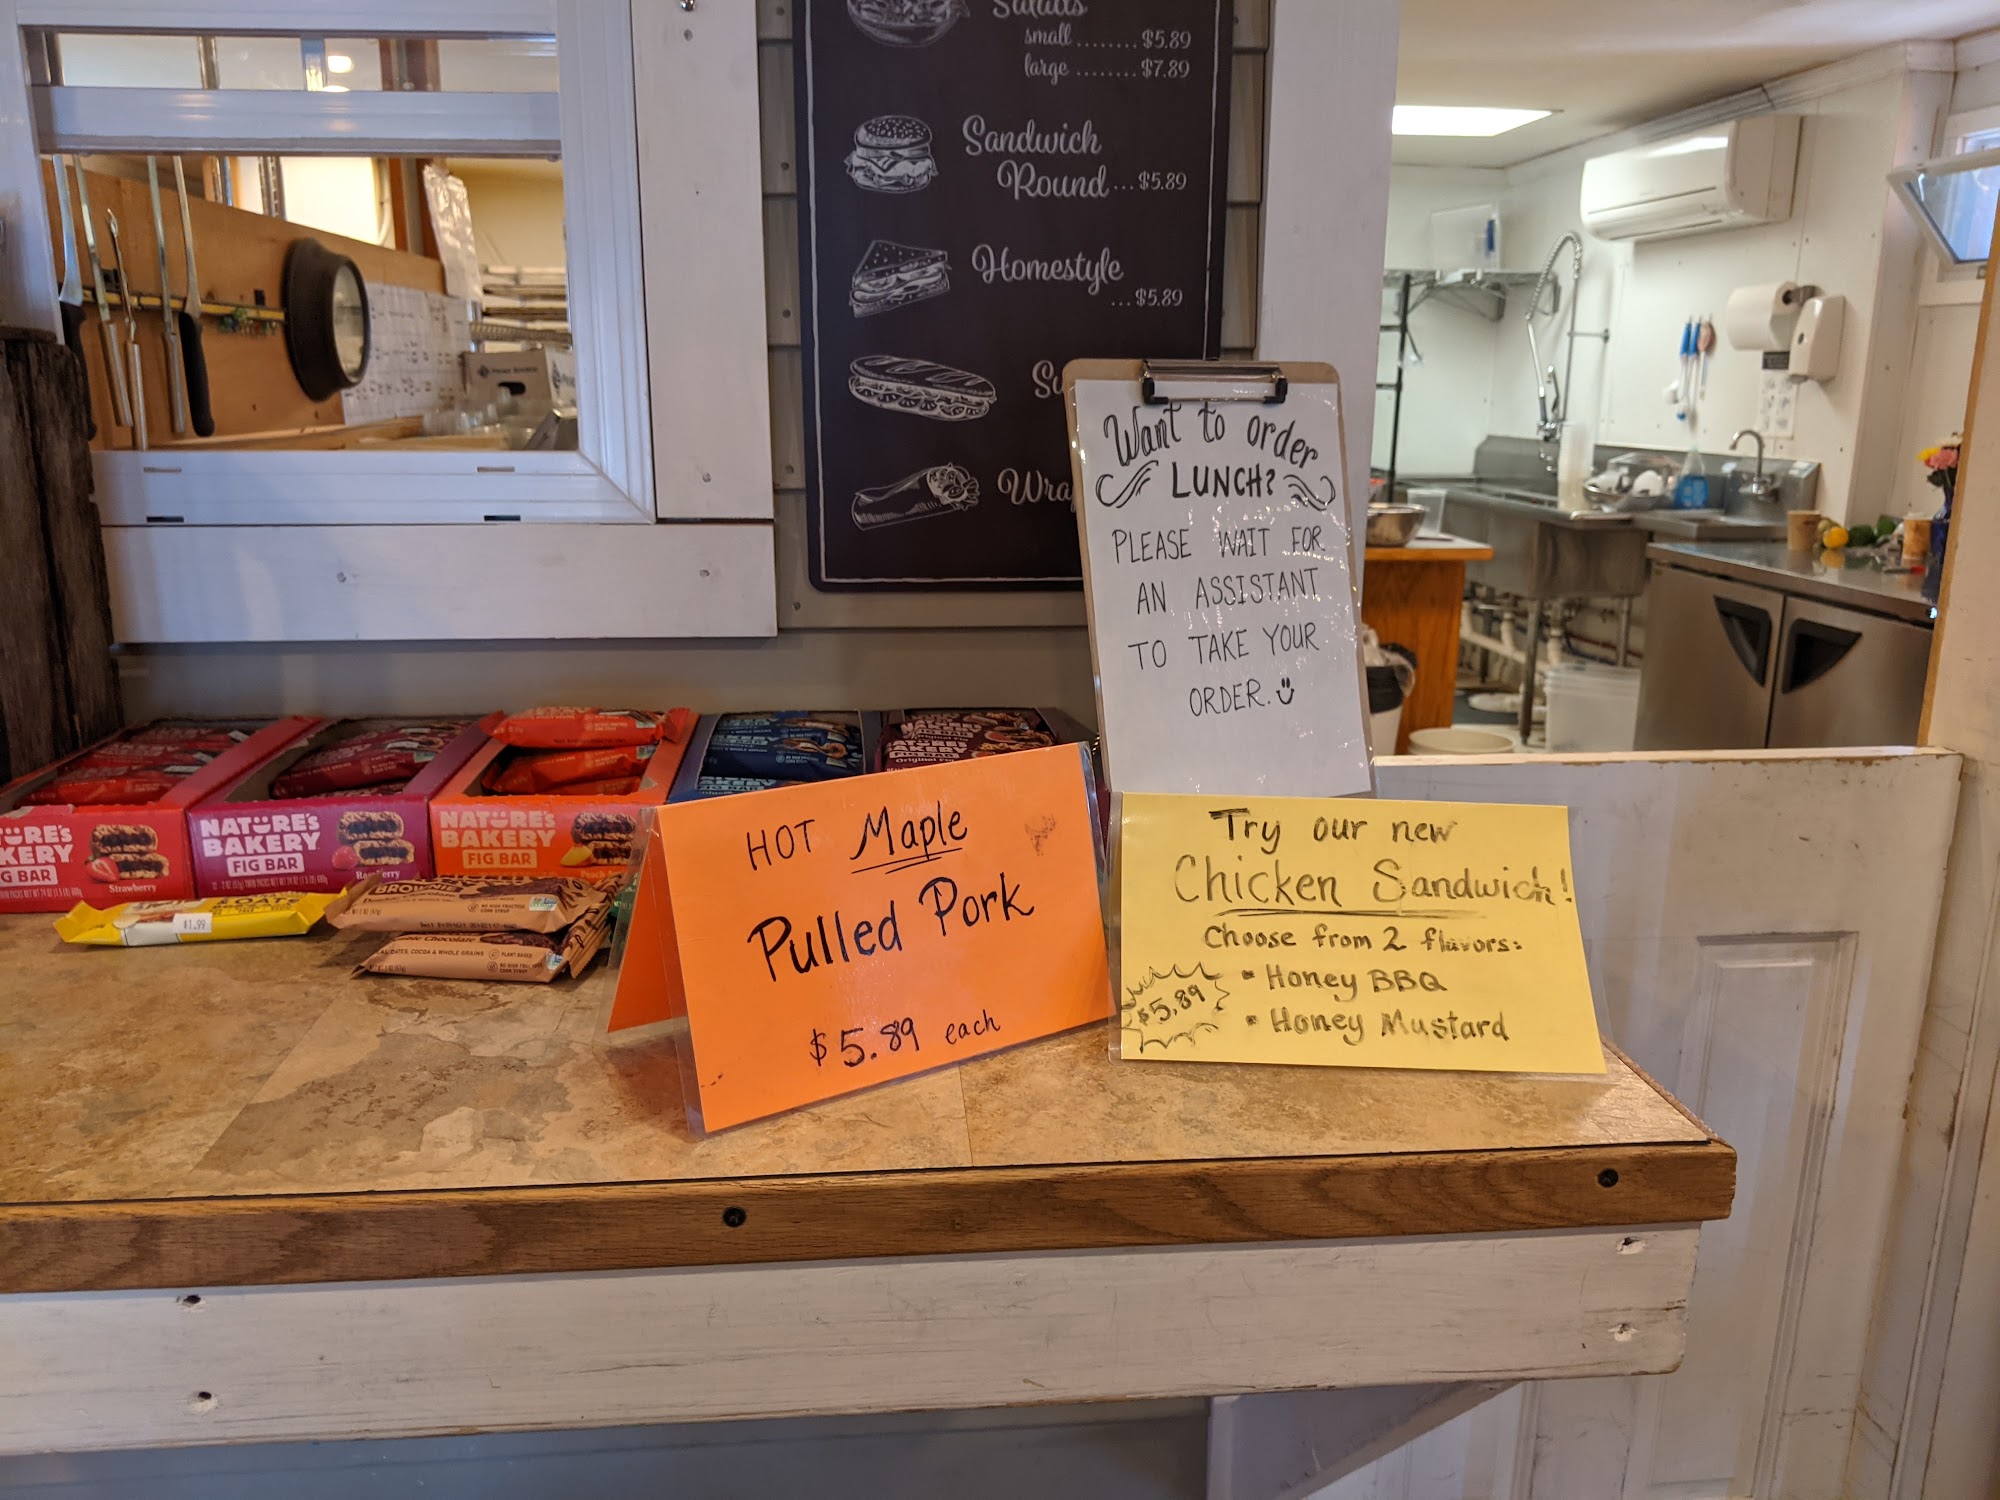 Salads
small ........ $5.89
large ........ $7.89
Sandwich
Round ... $5.89
Homestyle
... $5.89
Want to order
LUNCH?
PLEASE WAIT FOR
AN ASSISTANT
TO TAKE YOUR
ORDER.
NATURE'S
BAKERY
FIG BAR
Raspberry
Strawberry
NATURE'S
BAKERY
FIG BAR
$1.99
BROWNIE
HOT Maple
Pulled Pork
$5.89 each
Try our new
Chicken Sandwich!
Choose from 2 flavors:
• Honey BBQ
• Honey Mustard
$5.89